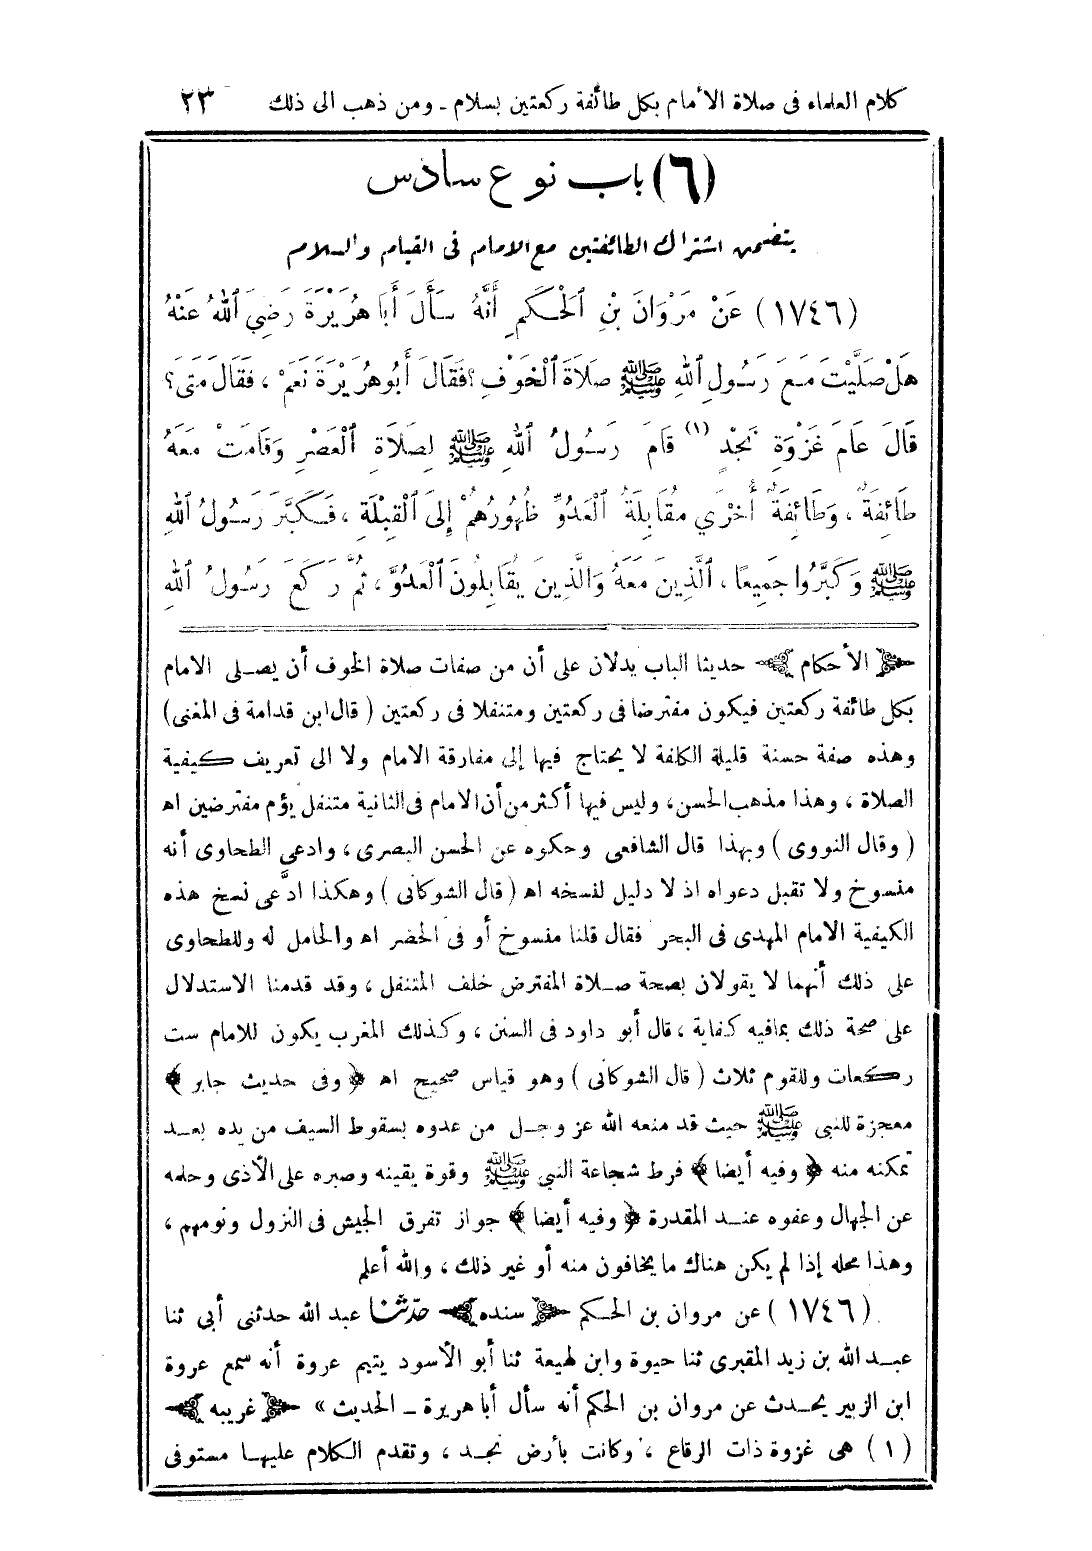 كلام العلماء فى صلاة الأمام بكل طائفة ركعتين بسلام ـ ومن ذهب الى ذلك ٢٣
(٦) باب نوع سادس
يتضمن اشتراك الطائفتين مع الامام فى القيام والسلام
(١٧٤٦) عَنْ مَرْوَانَ بْنِ ٱلْحَكَمِ أَنَّهُ سَأَلَ أَبَا هُرَيْرَةَ رَضِيَ ٱللهُ عَنْهُ
هَلْ صَلَّيْتَ مَعَ رَسُولِ ٱللهِ ﷺ صَلَاةَ ٱلْخَوْفِ؟ فَقَالَ أَبُو هُرَيْرَةَ نَعَمْ ، فَقَالَ مَتَى؟
قَالَ عَامَ غَزْوَةِ نَجْدٍ (١) قَامَ رَسُولُ ٱللهِ ﷺ لِصَلَاةِ ٱلْعَصْرِ وَقَامَتْ مَعَهُ
طَائِفَةٌ ، وَطَائِفَةٌ أُخْرَي مُقَابِلَةُ ٱلْعَدُوِّ ظُهُورُهُمْ إِلَى ٱلْقِبْلَةِ ، فَكَبَّرَ رَسُولُ ٱللهِ
ﷺ وَكَبَّرُوا جَمِيعًا ، ٱلَّذِينَ مَعَهُ وَالَّذِينَ يُقَابِلُونَ ٱلْعَدُوَّ ، ثُمَّ رَكَعَ رَسُولُ ٱللهِ
﴿ الأحكام ﴾ حديثا الباب يدلان على أن من صفات صلاة الخوف أن يصلى الامام
بكل طائفة ركعتين فيكون مفترضا فى ركعتين ومتنفلا فى ركعتين ( قال ابن قدامة فى المغنى )
وهذه صفة حسنة قليلة الكلفة لا يحتاج فيها إلى مفارقة الامام ولا الى تعريف كيفية
الصلاة ، وهذا مذهب الحسن، وليس فيها أكثر من أن الامام فى الثانية متنفل يؤم مفترضين اه
( وقال النووى ) وبهذا قال الشافعى وحكوه عن الحسن البصرى ، وادعى الطحاوى أنه
منسوخ ولا تقبل دعواه اذ لا دليل لنسخه اه ( قال الشوكانى ) وهكذا ادَّعى نسخ هذه
الكيفية الامام المهدى فى البحر فقال قلنا منسوخ أو فى الحضر اه والحامل له وللطحاوى
على ذلك أنهما لا يقولان بصحة صلاة المفترض خلف المتنفل ، وقد قدمنا الاستدلال
على صحة ذلك بما فيه كفاية ، قال أبو داود فى السنن ، وكذلك المغرب يكون للامام ست
ركعات وللقوم ثلاث ( قال الشوكانى ) وهو قياس صحيح اه ﴿ وفى حديث جابر ﴾
معجزة للنبى ﷺ حيث قد منعه الله عز وجل من عدوه بسقوط السيف من يده بعد
تمكنه منه ﴿ وفيه أيضا ﴾ فرط شجاعة النبى ﷺ وقوة يقينه وصبره على الأذى وحلمه
عن الجهال وعفوه عند المقدرة ﴿ وفيه أيضا ﴾ جواز تفرق الجيش فى النزول ونومهم ،
وهذا محله إذا لم يكن هناك ما يخافون منه أو غير ذلك ، والله أعلم
( ١٧٤٦ ) عن مروان بن الحكم ﴿ سنده ﴾ حدّثنا عبد الله حدثنى أبى ثنا
عبد الله بن زيد المقبرى ثنا حيوة وابن لهيعة ثنا أبو الأسود يتيم عروة أنه سمع عروة
ابن الزبير يحدث عن مروان بن الحكم أنه سأل أبا هريرة ـ الحديث » ﴿ غريبه ﴾
( ١ ) هى غزوة ذات الرقاع ، وكانت بأرض نجد ، وتقدم الكلام عليها مستوفى